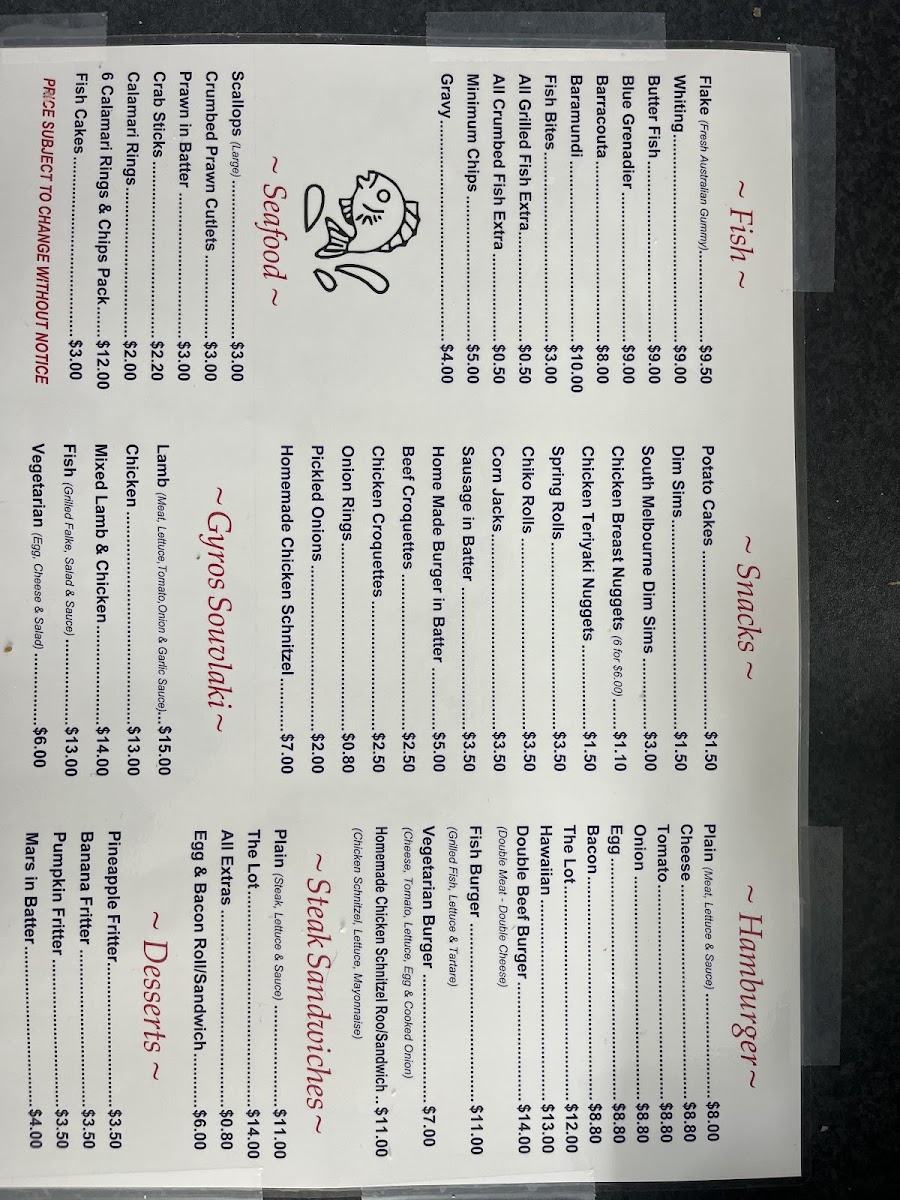 ~ Fish ~
Flake (Fresh Australian Gummy)..........$9.50
Whiting..........$9.00
Butter Fish..........$9.00
Blue Grenadier..........$9.00
Barracouta..........$8.00
Baramundi..........$10.00
Fish Bites..........$3.00
All Grilled Fish Extra..........$0.50
All Crumbed Fish Extra..........$0.50
Minimum Chips..........$5.00
Gravy..........$4.00
~ Seafood ~
Scallops (Large)..........$3.00
Crumbed Prawn Cutlets..........$3.00
Prawn in Batter..........$3.00
Crab Sticks..........$2.20
Calamari Rings..........$2.00
6 Calamari Rings & Chips Pack..........$12.00
Fish Cakes..........$3.00
PRICE SUBJECT TO CHANGE WITHOUT NOTICE
~ Snacks ~
Potato Cakes..........$1.50
Dim Sims..........$1.50
South Melbourne Dim Sims..........$3.00
Chicken Breast Nuggets (6 for $6.00)..........$1.10
Chicken Teriyaki Nuggets..........$1.50
Spring Rolls..........$3.50
Chiko Rolls..........$3.50
Corn Jacks..........$3.50
Sausage in Batter..........$3.50
Home Made Burger in Batter..........$5.00
Beef Croquettes..........$2.50
Chicken Croquettes..........$2.50
Onion Rings..........$0.80
Pickled Onions..........$2.00
Homemade Chicken Schnitzel..........$7.00
~ Gyros Souvlaki ~
Lamb (Meat, Lettuce,Tomato,Onion & Garlic Sauce)...$15.00
Chicken..........$13.00
Mixed Lamb & Chicken..........$14.00
Fish (Grilled Falke, Salad & Sauce)..........$13.00
Vegetarian (Egg, Cheese & Salad)..........$6.00
~ Hamburger~
Plain (Meat, Lettuce & Sauce)..........$8.00
Cheese..........$8.80
Tomato..........$8.80
Onion..........$8.80
Egg..........$8.80
Bacon..........$8.80
The Lot..........$12.00
Hawaiian..........$13.00
Double Beef Burger..........$14.00
(Double Meat - Double Cheese)
Fish Burger..........$11.00
(Grilled Fish, Lettuce & Tartare)
Vegetarian Burger..........$7.00
(Cheese, Tomato, Lettuce, Egg & Cooked Onion)
Homemade Chicken Schnitzel Roo/Sandwich .. $11.00
(Chicken Schnitzel, Lettuce, Mayonnaise)
~ Steak Sandwiches ~
Plain (Steak, Lettuce & Sauce)..........$11.00
The Lot..........$14.00
All Extras..........$0.80
Egg & Bacon Roll/Sandwich..........$6.00
~ Desserts ~
Pineapple Fritter..........$3.50
Banana Fritter..........$3.50
Pumpkin Fritter..........$3.50
Mars in Batter..........$4.00